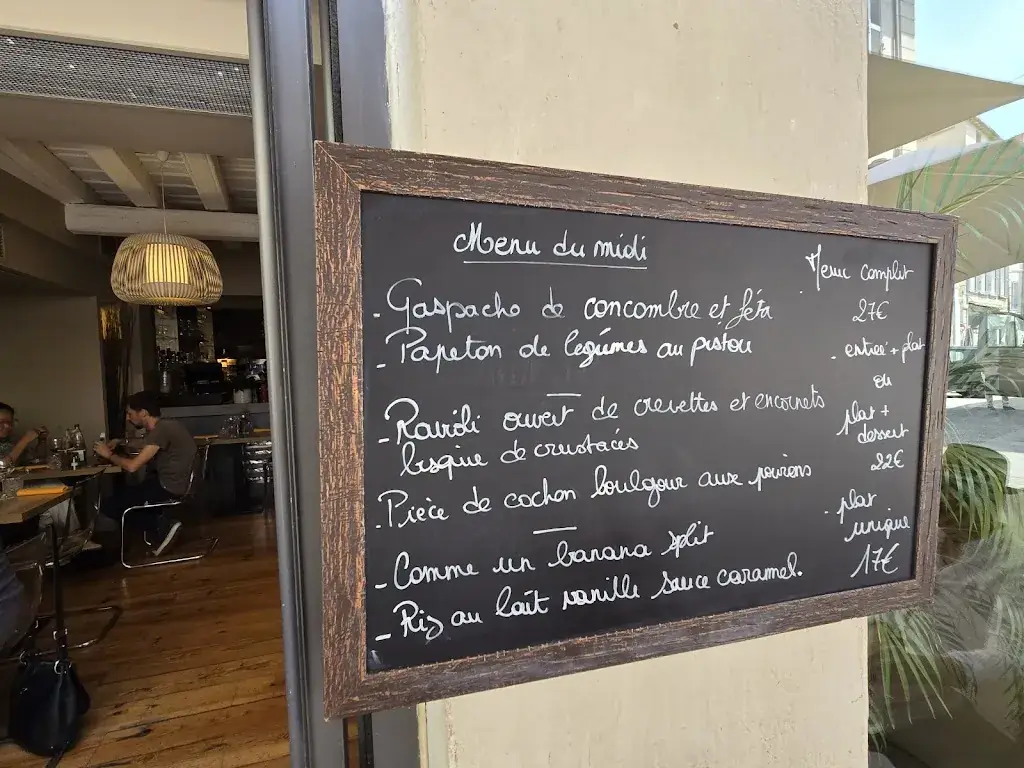 Menu du midi
- Gaspacho de concombre et féta
- Papeton de légumes au pistou
- Ravioli ouvert de crevettes et encornets
bisque de crustacés
- Pièce de cochon boulgour aux poivrons
- Comme un banana split
- Riz au lait vanille sauce caramel.
Menu complet
27€
- entrée + plat
ou
plat +
dessert
22€
- plat
unique
17€